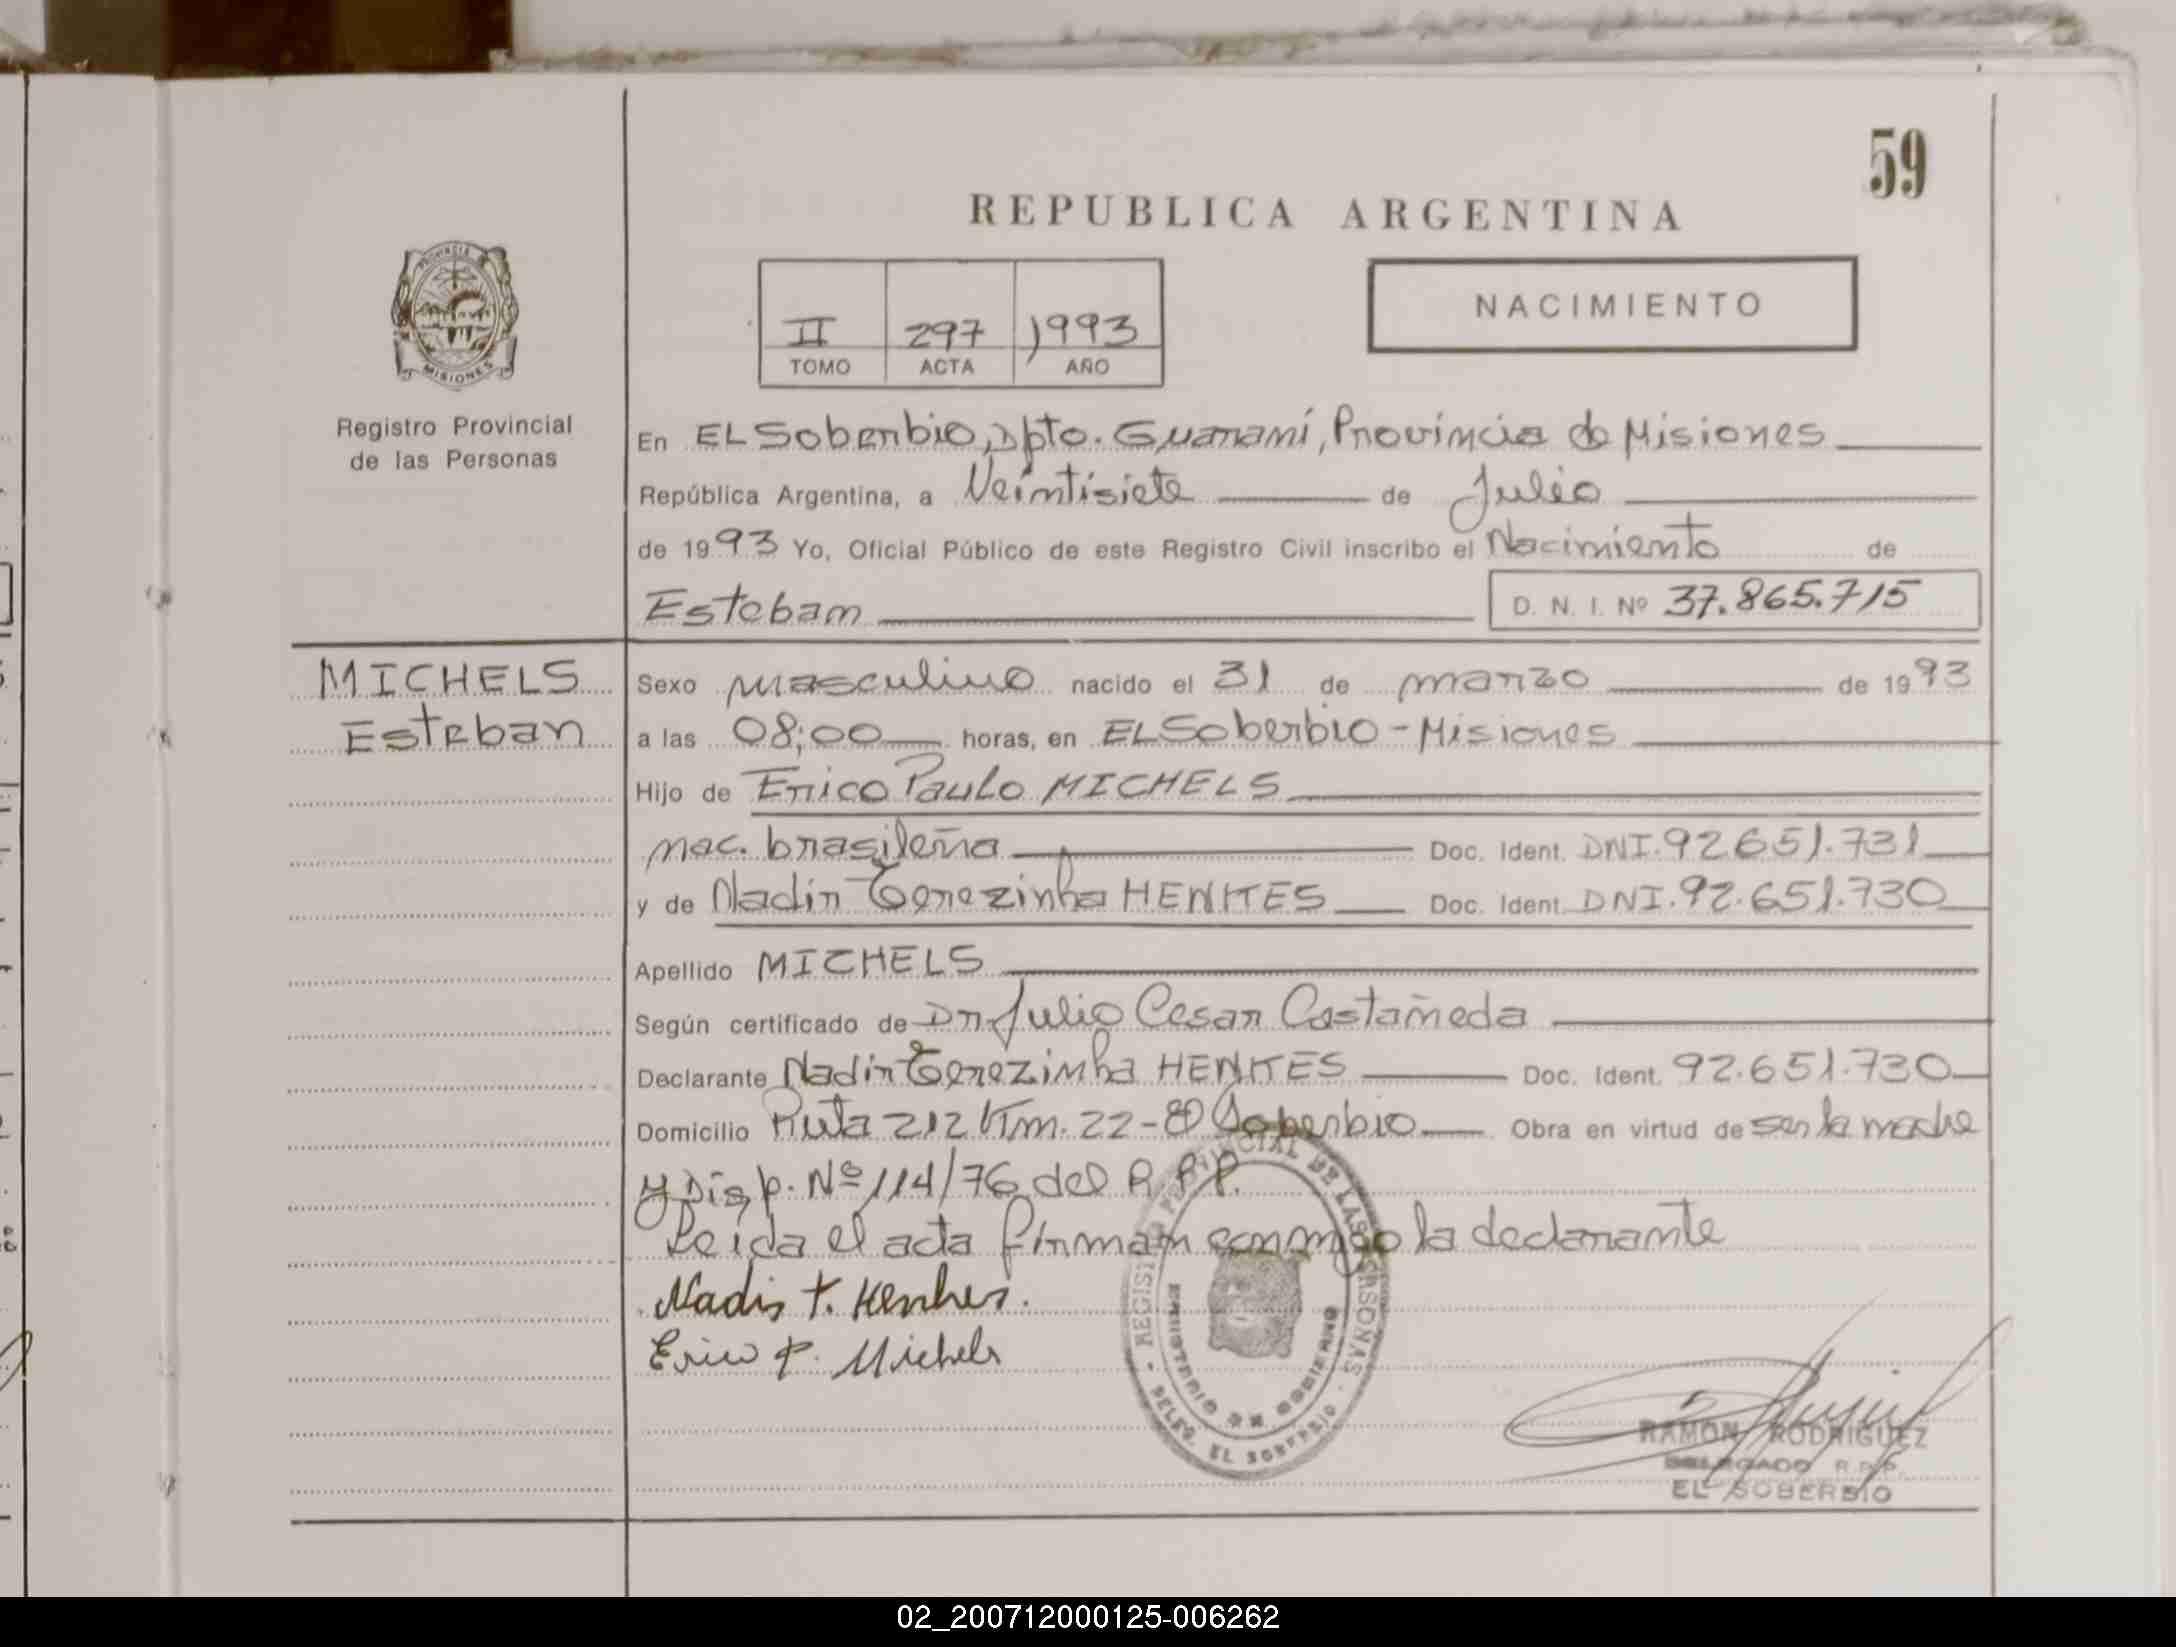 59
REPUBLICA ARGENTINA
PROVINCIA DE
MISIONES
II 297 1993
TOMO ACTA AÑO
NACIMIENTO
Registro Provincial
de las Personas
En EL Soberbio, Dpto. Guaraní, Provincia de Misiones
República Argentina, a Veintisiete de Julio
de 1993 Yo, Oficial Público de este Registro Civil inscribo el Nacimiento de
Esteban D. N. I. Nº 37.865.715
MICHELS
Esteban
Sexo masculino nacido el 31 de marzo de 1993
a las 08;00 horas, en EL Soberbio - Misiones
Hijo de Erico Paulo MICHELS
nac. brasileña Doc. Ident. DNI.92651.731
y de Nadir Terezinha HENKES Doc. Ident. DNI.92.651.730
Apellido MICHELS
Según certificado de Dr. Julio Cesar Castañeda
Declarante Nadir Terezinha HENKES Doc. Ident. 92.651.730
Domicilio Ruta 212 Km. 22 - El Soberbio Obra en virtud de ser la madre
y Disp. Nº 114/76 del R.P.P.
Leida el acta firman conmigo la declarante
Nadir T. Henkes.
Erico P. Michels
REGISTRO PROVINCIAL DE LAS PERSONAS
MINISTERIO DE GOBIERNO
DELEG. EL SOBERBIO
RAMON RODRIGUEZ
DELEGADO R.P.P.
EL SOBERBIO
02_200712000125-006262